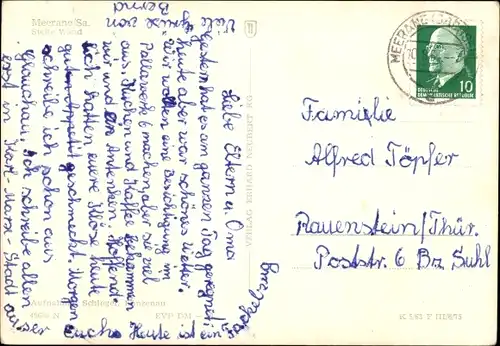 Meerane/Sa.
Steile Wand
MEERANE (SACHS)
10
DEUTSCHE
DEMOKRATISCHE REPUBLIK
Liebe Eltern u. Oma
gestern hat es am ganzen Tag geregnet
heute aber war schönes Wetter.
Wir wollten eine Besichtigung im
Pallawerk machen aber sie fiel
aus. Kuchen und Kaffee bekammen
wir und ein Antenken. Hoffend.
lich hatten euere Klöse heute
guten Appetit geschmeckt. Morgen
schreibe ich schon aus
Glauchau. Ich schreibe allen
erst in Karl-Marx-Stadt
außer Euch. Heute ist ein
Fackelzug
Viele
Grüße von
Bernd
VERLAG ERHARD NEUBERT KG
Familie
Alfred Töpfer
Rauenstein/Thür.
Poststr. 6 Bz Suhl